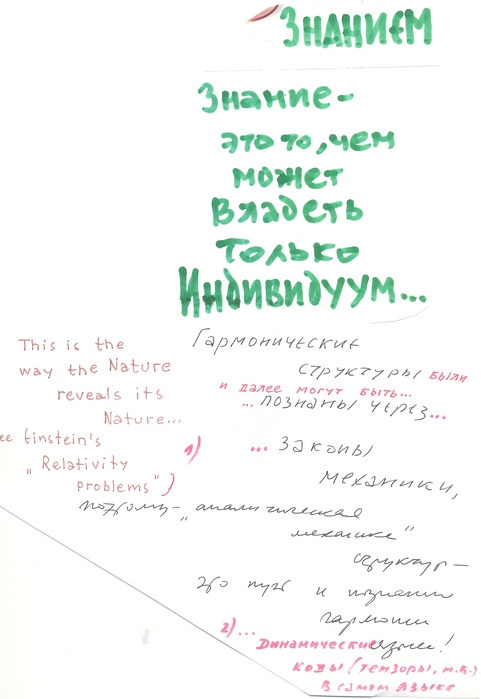 Знанием
Знание-
это то, чем
может
Владеть
Только
Индивидуум...
This is the
way the Nature
reveals its
Nature...
ee Einstein's
„Relativity
problems")
Гармонические
структуры были
и далее могут быть...
... познаны через...
1)
... Законы
механики,
поэтому - „аналитическая
механика"
структур -
это путь и познании
гармонии
2)...
Динамические
коды (тензоры, м.б.)
в самом языке